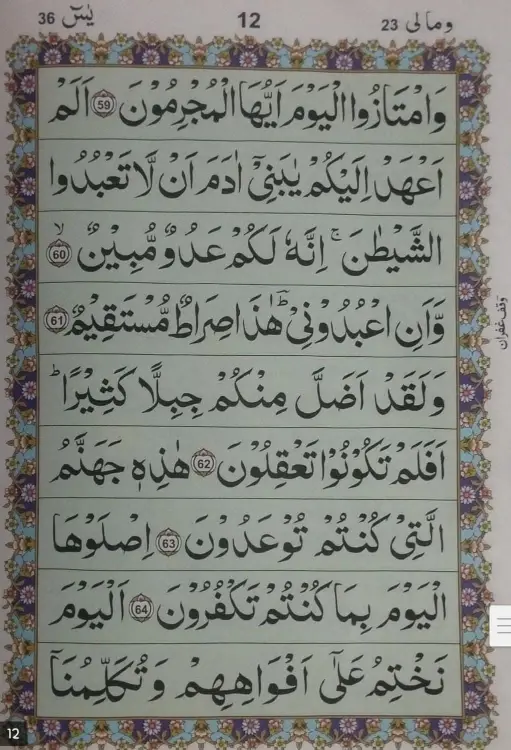 يٰسٓ 36
12
ومالی 23
وَامْتَازُوا الْيَوْمَ اَيُّهَا الْمُجْرِمُوْنَ 59 اَلَمْ
اَعْهَدْ اِلَيْكُمْ يٰبَنِيْٓ اٰدَمَ اَنْ لَّا تَعْبُدُوا
الشَّيْطٰنَ ۚ اِنَّهٗ لَكُمْ عَدُوٌّ مُّبِيْنٌ ۙ 60
وَّاَنِ اعْبُدُوْنِيْ ؕ هٰذَا صِرَاطٌ مُّسْتَقِيْمٌ 61
وقف غفران
وَلَقَدْ اَضَلَّ مِنْكُمْ جِبِلًّا كَثِيْرًا ؕ
اَفَلَمْ تَكُوْنُوْا تَعْقِلُوْنَ 62 هٰذِهٖ جَهَنَّمُ
الَّتِيْ كُنْتُمْ تُوْعَدُوْنَ 63 اِصْلَوْهَا
الْيَوْمَ بِمَا كُنْتُمْ تَكْفُرُوْنَ 64 اَلْيَوْمَ
نَخْتِمُ عَلٰٓى اَفْوَاهِهِمْ وَتُكَلِّمُنَآ
12